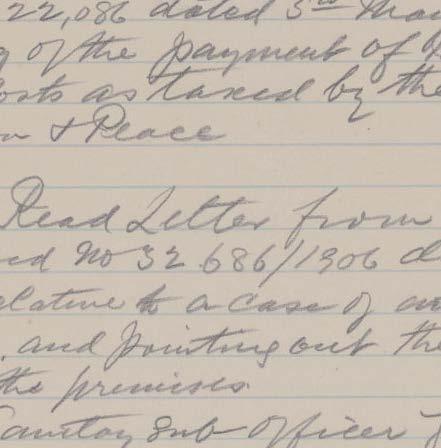 22,086 dated 5th Mar
g of the payment of
osts as taxed by the
n & Peace
Read Letter from
ed No 32.686/1906 d
elative to a case of
. and pointing out the
the premises
Sanitary Sub Officer